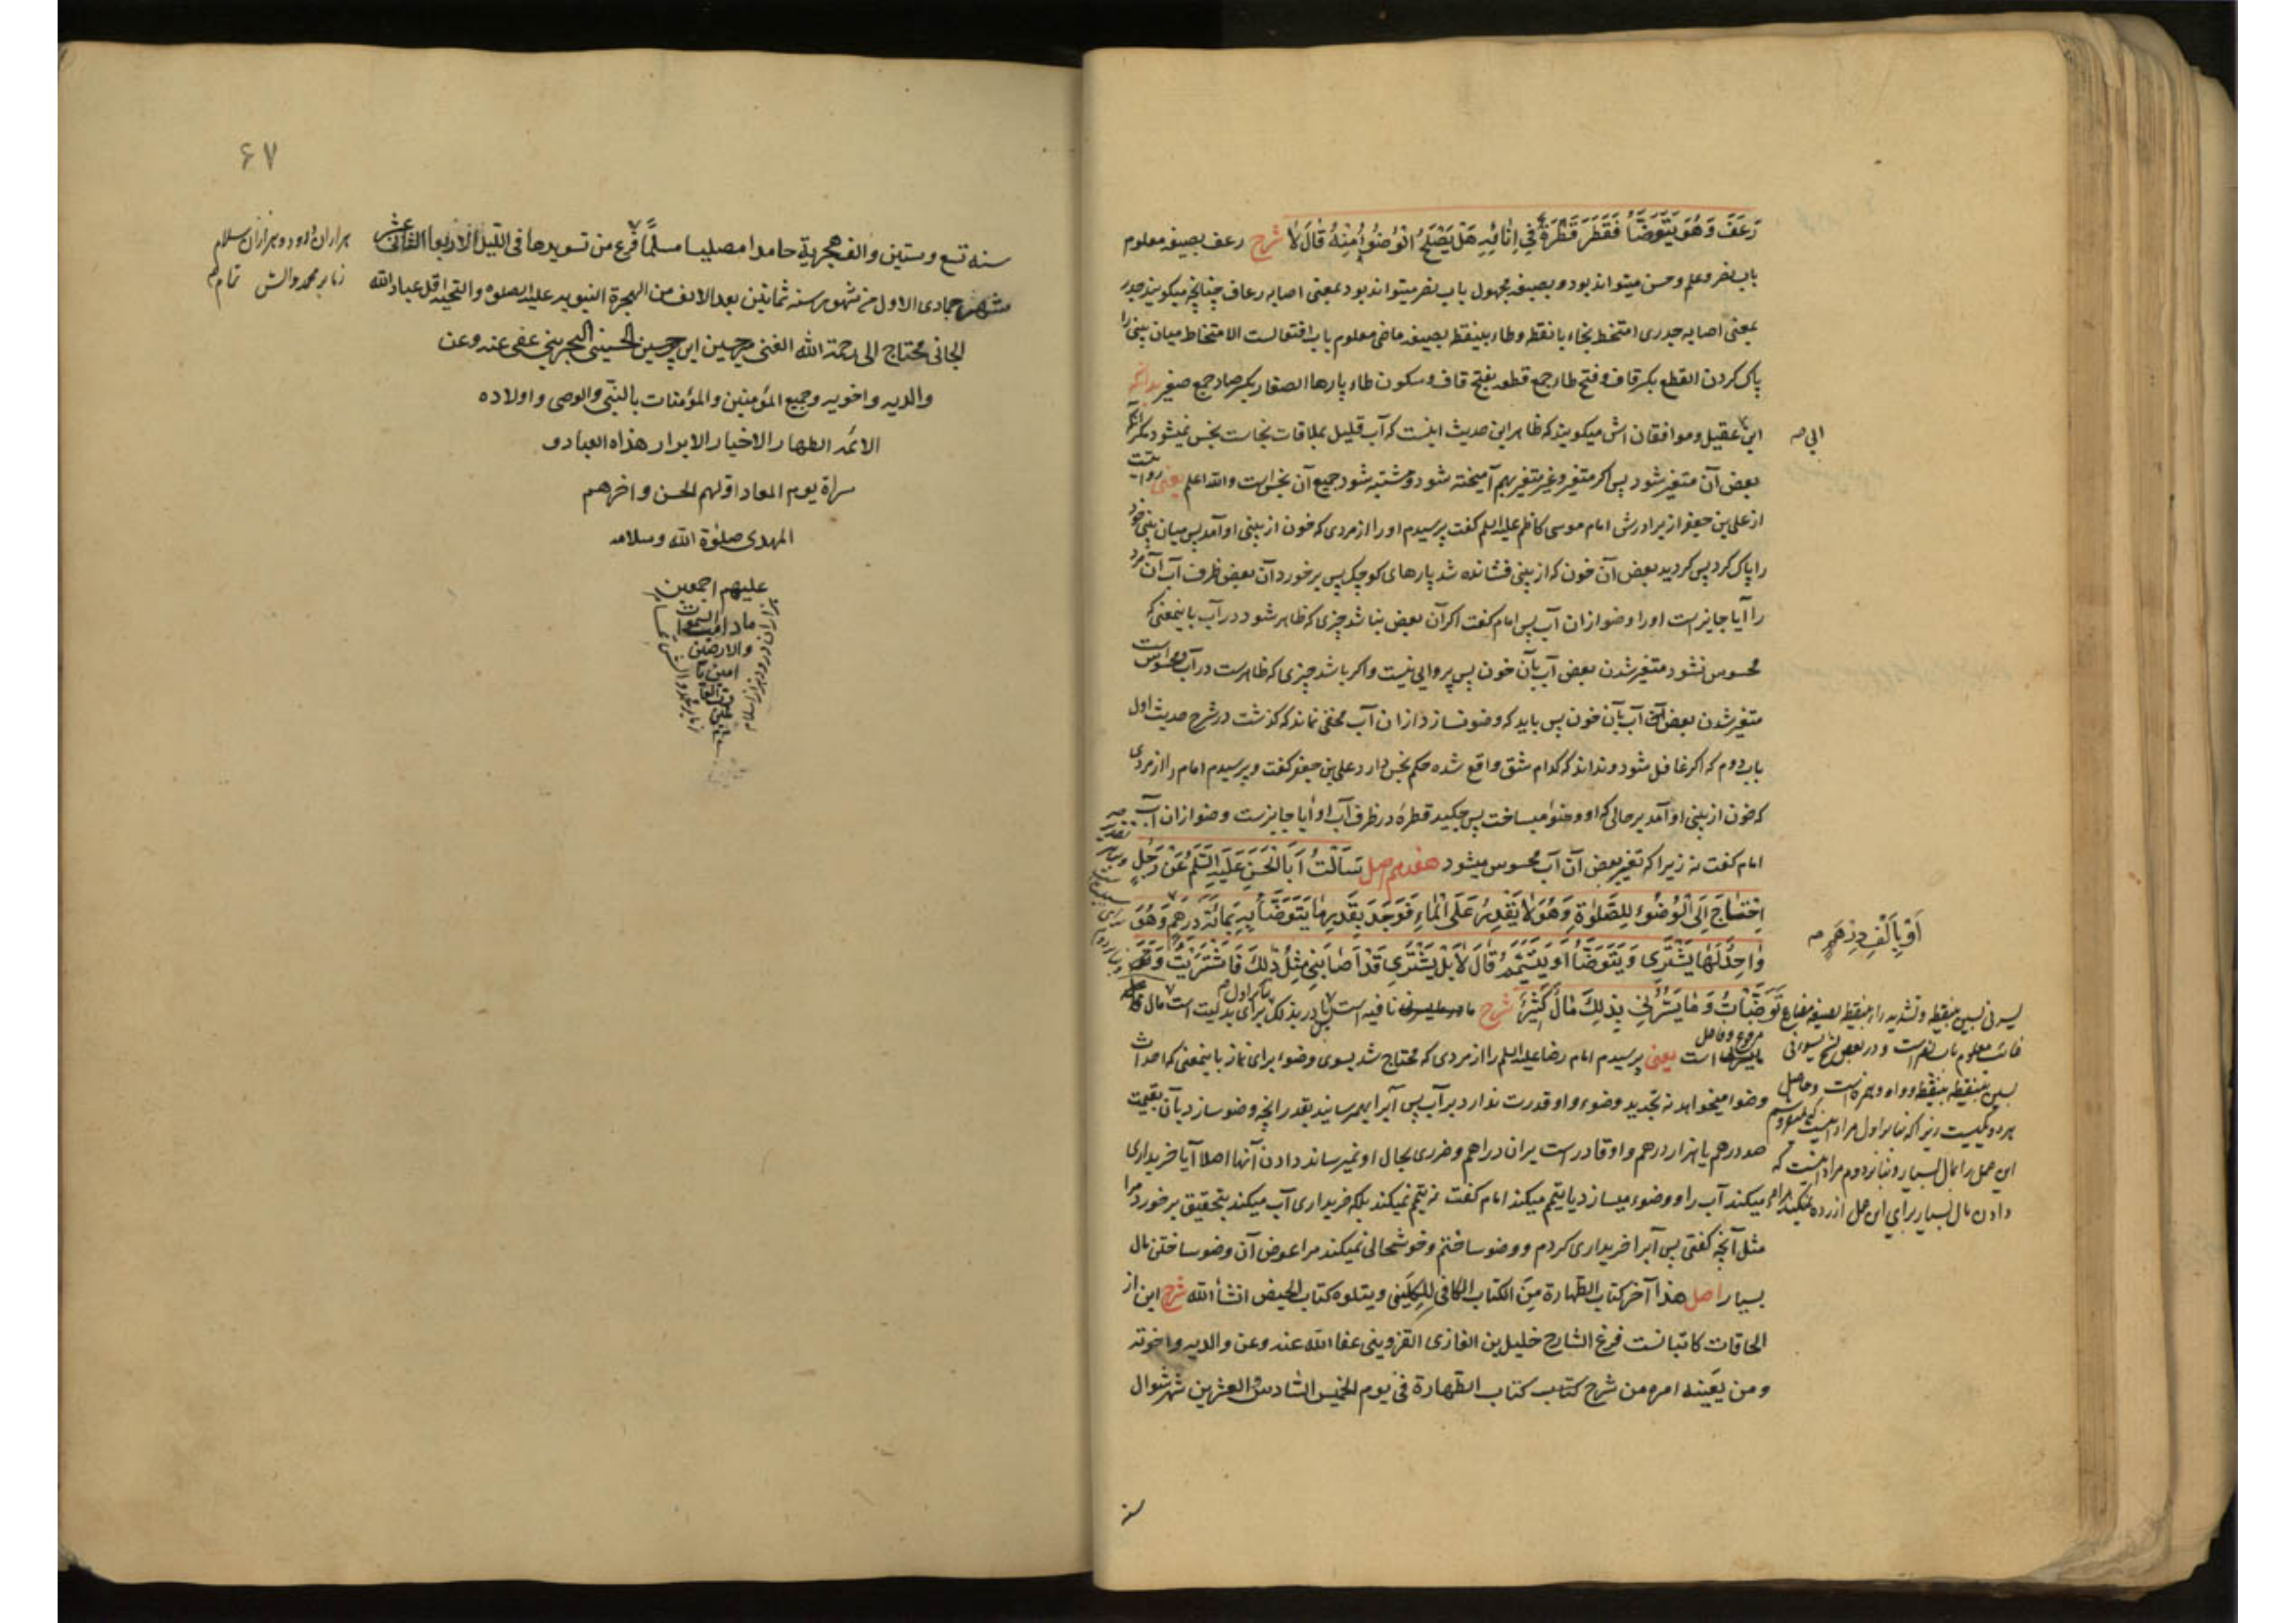 رَعَفَ وَهُوَ يَتَوَضَّأُ فَقَطَرَ قَطْرَةٌ فِي إِنَائِهِ هَلْ يَصْلَحُ الْوُضُوءُ مِنْهُ قَالَ لَا شرح رعف بصیغه معلوم
باب نصر و علم و حسن میتواند بود و بصیغه مجهول باب نصر میتواند بود بمعنی اصابه رعاف چنانچه میکویند جدر
بمعنی اصابه جدری امتخط بخاء بانقطه و طاء بینقطه بصیغه ماضی معلوم باب افتعالست الامتخاط میان بینی را
پاک کردن القطع بکسر قاف و فتح طاء جمع قطعه بفتح قاف و سکون طاء پارها الصغار بکسر صاد جمع صغیر بدانکه
ابن عقیل و موافقان اش میکویند که ظاهر این حدیث اینست که آب قلیل بملاقات نجاست نجس نمیشود مکر آنکه
ابی صه
بعض آن متغیر شود پس اکر متغیر و غیر متغیر بهم آمیخته شود و مشتبه شود جمیع آن نجس است والله اعلم یعنی روایتست
از علی بن جعفر از برادرش امام موسی کاظم علیه السلم کفت پرسیدم او را از مردی که خون از بینی او آمد پس میان بینی خود
را پاک کرد پس کردید بعض آن خون که از بینی فشانده شد پارهای کوچک پس برخورد آن بعض ظرف آب آن مرد
را آیا جایز است او را وضو از ان آب پس امام کفت اکر آن بعض نباشد چیزی که ظاهر شود در آب باینمعنی که
محسوس نشود متغیر شدن بعض آب بآن خون پس پروایی نیست و اکر باشد چیزی که ظاهرست در آب و محسوس است
متغیر شدن بعض آن آب بآن خون پس باید که وضو نسازد از ان آب مخفی نماند که کذشت در شرح حدیث اول
باب دوم که اکر غافل شود و نداند که کدام شق واقع شده حکم نجس دارد علی بن جعفر کفت و پرسیدم امام را از مردی
که خون از بینی او آمد بر حالی که او وضو میساخت پس چکید قطره در ظرف آب او آیا جایزست وضو از ان آب
امام کفت نه زیرا که تغییر بعض آن آب محسوس میشود هفدهم اصل سَأَلْتُ أَبَا الْحَسَنِ عَلَيْهِ السَّلَمُ عَنْ رَجُلٍ
احْتَاجَ إِلَى الْوُضُوءِ لِلصَّلَوةِ وَهُوَ لَا يَقْدِرُ عَلَى الْمَاءِ فَوَجَدَ بِقَدْرِ مَا يَتَوَضَّأُ بِهِ بِمِائَةِ دِرْهَمٍ وَهُوَ
أَوْ بِأَلْفِ دِرْهَمٍ صه
وَاجِدٌ لَهَا يَشْتَرِي وَيَتَوَضَّأُ أَوْ يَتَيَمَّمُ قَالَ لَا بَلْ يَشْتَرِي قَدْ أَصَابَنِي مِثْلُ ذَلِكَ فَاشْتَرَيْتُ وَ
تَوَضَّأْتُ وَمَا يَسُرُّنِي بِذَلِكَ مَالٌ كَثِيرٌ شرح ما نافیه است در بذلک برای بدلیت است مال
است یعنی پرسیدم امام رضا علیه السلم را از مردی که محتاج شد بسوی وضوء برای نماز باینمعنی که احداث
وضو میخواهد نه تجدید وضوء و او قدرت ندارد بر آب پس آبرا بهمرسانید بقدر انچه وضو سازد بآن بقیمت
صد درهم یا هزار درهم و او قادر است بران دراهم و ضرری بحال او نمیرساند دادن آنها اصلا آیا خریداری
میکند آب را و وضوء میسازد یا تیمم میکند امام کفت نه تیمم نمیکند بلکه خریداری آب میکند بتحقیق برخورد مرا
مثل آنچه کفتی پس آبرا خریداری کردم و وضو ساختم و خوشحالی نمیکند مرا عوض آن وضو ساختن مال
بسیار اصل هذا آخر کتاب الطهارة من الکتاب الکافی للکلینی و یتلوه کتاب الحیض انشاء الله شرح این از
الحاقات کاتبانست فرغ الشارح خلیل بن الغازی القزوینی عفا الله عنه و عن والدیه و اخوته
و من یعینه امره من شرح کتاب کتاب الطهارة فی یوم الخمیس السادس و العشرین شهر شوال
سنه
یسرنی بسین بینقطه و تشدید راء بینقطه بصیغه مضارع
غائب معلوم باب نصر است و در بعض نسخ یسوانی
بسین بینقطه و واو و همزه است و حاصل
هر دو یکیست زیرا که بنابر اول مراد اینست که
این عمل را بمال بسیار و بنابر دوم مراد اینست که
دادن مال بسیار برای این عمل ازرده نمیکند مرا
۶۷
سنه تسع و ستین و الف هجریة حامدا مصلیا مسلما فرغ من تسویدها فی اللیل الاربعا الثانی عشر
شهر جمادی الاول من شهور سنه ثمانین بعد الالف من الهجرة النبویه علیه الصلوه و التحیه اقل عباد الله
الجانی محتاج الی رحمة الله الغنی میرحسین ابن میرحسین الحسینی البحرینی عفی عنه و عن
والدیه و اخویه و جمیع المؤمنین و المؤمنات بالنبی و الوصی و اولاده
الائمه الطهار الاخیار الابرار هداه العباد و
سراة یوم المعاد اولهم الحسن و اخرهم
المهدی صلوة الله و سلامه
علیهم اجمعین
ما دامت السموات
والارضین
امین یا
رب العا
لمین
هزاران درود و هزاران سلام
ز ما بر محمد و الش تمام
هزاران درود و هزاران سلام
ز ما بر محمد و الش